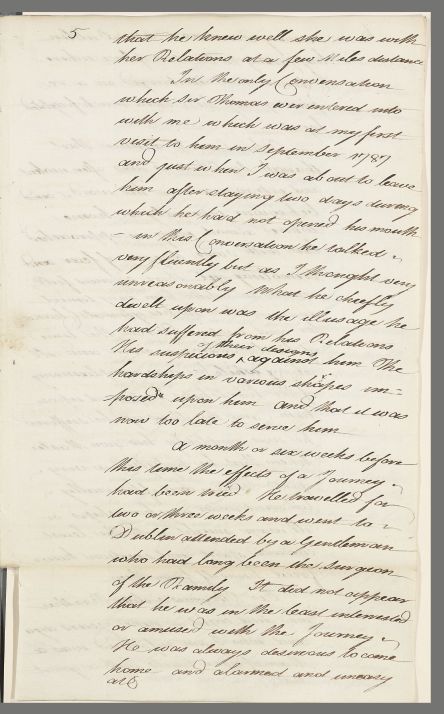 5
that he knew well she was with
her Relations at a few Miles distance
In the only Conversation
which Sir Thomas ever entered into
with me which was at my first
visit to him in September 1787
and just when I was about to leave
him after staying two days during
which he had not opened his mouth
– in this Conversation he talked
very fluently but as I thought very
unreasonably What he cheefly
dwelt upon was the illusage he
had suffered from his Relations
His suspicions of their designs against him The
hardships in various shapes im=
posed upon him and that it was
now too late to serve him
a month or six weeks before
this time the effects of a Journey
had been tried He travelled for
two or three weeks and went to
Dublin attended by a Gentleman
who had long been the Surgeon
of the Family It did not appear
that he was in the least interested
or amused with the Journey
He was always desirous to come
home and alarmed and uneasy
at